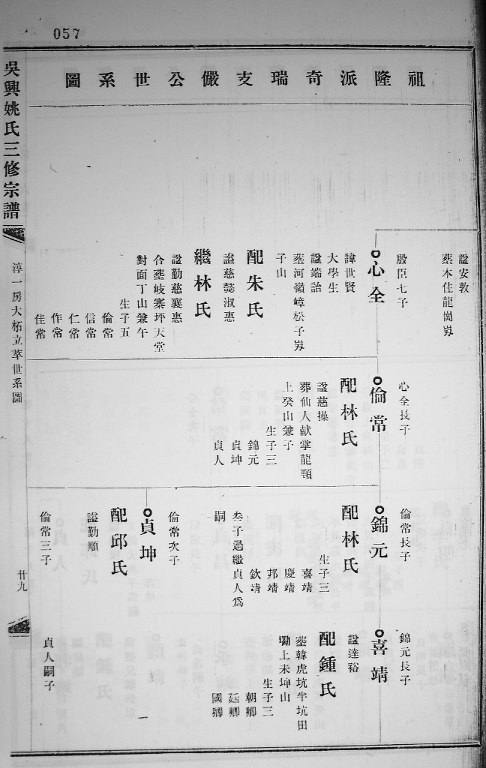 057
祖隆派奇瑞支儼公世系圖
吳興姚氏三修宗譜
淳一房大柘立莘世系圖
廿九
諡安敦
塟本住龍崗㘭
殷臣七子
心全
諱世賢
大學生
諡端詒
塟河嶺嶂松子㘭
子山
配朱氏
諡慈懿淑惠
繼林氏
諡勤慈襄惠
合塟岐寨坪天堂
對面丁山兼午
生子五
倫常
信常
仁常
作常
佳常
心全長子
倫常
配林氏
諡慈操
葬仙人献掌龍頸
上癸山兼子
生子三
錦元
貞坤
貞人
倫常長子
錦元
配林氏
生子三
喜靖
慶靖
邦靖
欽靖
叁子過繼貞人為
嗣
倫常次子
貞坤
配邱氏
諡勤順
倫常三子
錦元長子
喜靖
諡達裕
配鍾氏
塟韓虎坑半坑田
墈上未坤山
生子三
朝卿
廷卿
國卿
貞人嗣子